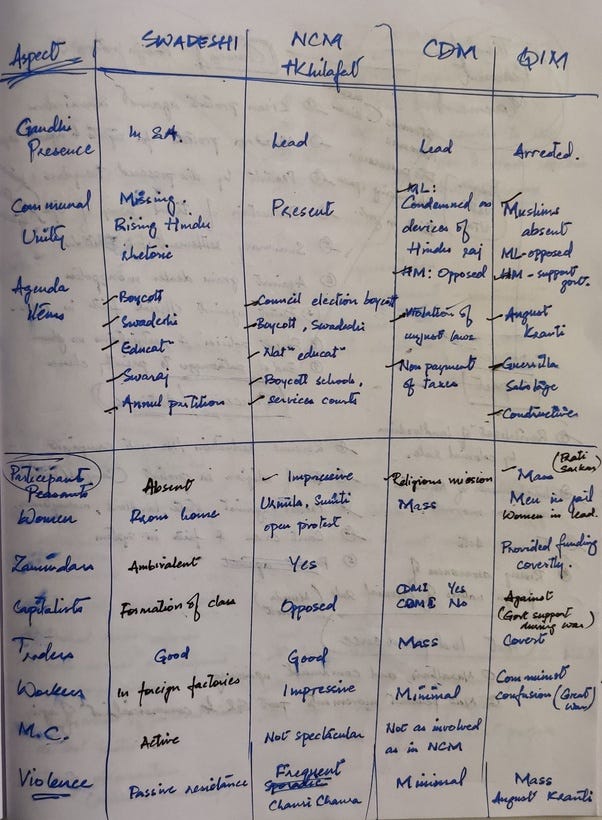 Aspect SWADESHI NCM CDM QIM
+Khilafat
Gandhi Presence In S.A. Lead Lead Arrested.
Communal Unity
Missing.
Rising Hindu
rhetoric
Present
ML:
Condemned as
devices of
Hindu raj
HM: Opposed
Muslims
absent
ML-opposed
HM - support
govt.
Agenda
Items
Boycott
Swadeshi
Educatn
Swaraj
Annul partition
Council election boycott
Boycott, Swadeshi
Natn educatn
Boycott schools,
services courts
Violation of
unjust laws
Non payment
of taxes
August
Kranti
Guerrilla
Sabotage
Constructive
Participants
Peasants Absent Impressive Religious mission Mass (Prati
Sarkar)
Women From home
Urmila, Suniti
open protest
Mass
Men in jail
Women in lead.
Zamindars Ambivalent Yes
Provided funding
covertly.
Capitalists Formation of class Opposed
CDMI Yes
CDMII No
Against
(Govt support
during war)
Traders Good Good Mass Covert
Workers In foreign factories Impressive Minimal
Communist
confusion (Great
war)
M.C. Active Not spectacular
Not as involved
as in NCM
Violence Passive resistance
Frequent
Sporadic
Chauri Chaura
Minimal
Mass
August Kranti